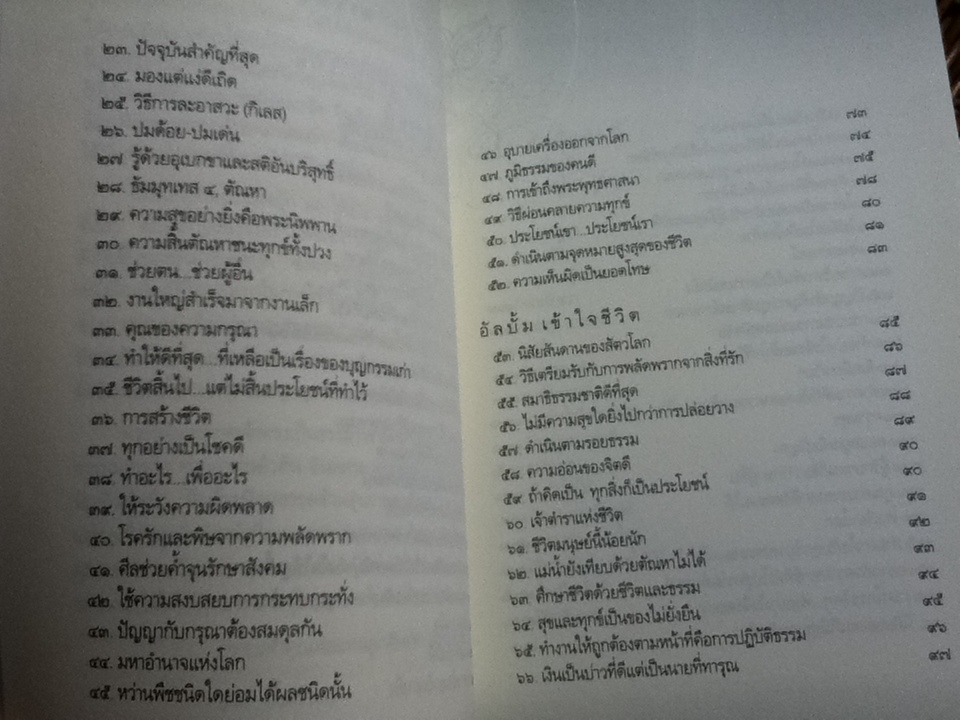 ๒๓. ปัจจุบันสำคัญที่สุด
๒๔. มองแต่แง่ดีเถิด
๒๕. วิธีการละอาสวะ (กิเลส)
๒๖. ปมด้อย-ปมเด่น
๒๗ รู้ด้วยอุเบกขาและสติอันบริสุทธิ์
๒๘. ธัมมุทเทส ๔, ตัณหา
๒๙. ความสุขอย่างยิ่งคือพระนิพพาน
๓๐. ความสิ้นตัณหาชนะทุกข์ทั้งปวง
๓๑. ช่วยตน...ช่วยผู้อื่น
๓๒. งานใหญ่สำเร็จมาจากงานเล็ก
๓๓. คุณของความกรุณา
๓๔. ทำให้ดีที่สุด...ที่เหลือเป็นเรื่องของบุญกรรมเก่า
๓๕. ชีวิตสิ้นไป...แต่ไม่สิ้นประโยชน์ที่ทำไว้
๓๖. การสร้างชีวิต
๓๗. ทุกอย่างเป็นโชคดี
๓๘. ทำอะไร...เพื่ออะไร
๓๙. ให้ระวังความผิดพลาด
๔๐. โรครักและพิษจากความพลัดพราก
๔๑. ศีลช่วยค้ำจุนรักษาสังคม
๔๒. ใช้ความสงบสยบการกระทบกระทั่ง
๔๓. ปัญญากับกรุณาต้องสมดุลกัน
๔๔. มหาอำนาจแห่งโลก
๔๕. หว่านพืชชนิดใดย่อมได้ผลชนิดนั้น
๔๖ อุบายเครื่องออกจากโลก ๗๓
๔๗. ภูมิธรรมของคนดี ๗๔
๔๘. การเข้าถึงพระพุทธศาสนา ๗๕
๔๙. วิธีผ่อนคลายความทุกข์ ๗๘
๕๐. ประโยชน์เขา...ประโยชน์เรา ๘๐
๕๑. ดำเนินตามจุดหมายสูงสุดของชีวิต ๘๑
๕๒. ความเห็นผิดเป็นยอดโทษ ๘๓
อัลบั้ม เข้าใจชีวิต
๕๓. นิสัยสันดานของสัตวโลก ๘๕
๕๔. วิธีเตรียมรับกับการพลัดพรากจากสิ่งที่รัก ๘๖
๕๕. สมาธิธรรมชาติดีที่สุด ๘๗
๕๖. ไม่มีความสุขใดยิ่งไปกว่าการปล่อยวาง ๘๘
๕๗. ดำเนินตามรอยธรรม ๘๙
๕๘. ความอ่อนของจิตดี ๙๐
๕๙. ถ้าคิดเป็น ทุกสิ่งก็เป็นประโยชน์ ๙๐
๖๐. เจ้าตำราแห่งชีวิต ๙๑
๖๑. ชีวิตมนุษย์นี้น้อยนัก ๙๒
๖๒. แม่น้ำยังเทียบด้วยตัณหาไม่ได้ ๙๓
๖๓. ศึกษาชีวิตด้วยชีวิตและธรรม ๙๔
๖๔. สุขและทุกข์เป็นของไม่ยั่งยืน ๙๕
๖๕. ทำงานให้ถูกต้องตามหน้าที่คือการปฏิบัติธรรม ๙๖
๖๖. เงินเป็นบ่าวที่ดีแต่เป็นนายที่ทารุณ ๙๗